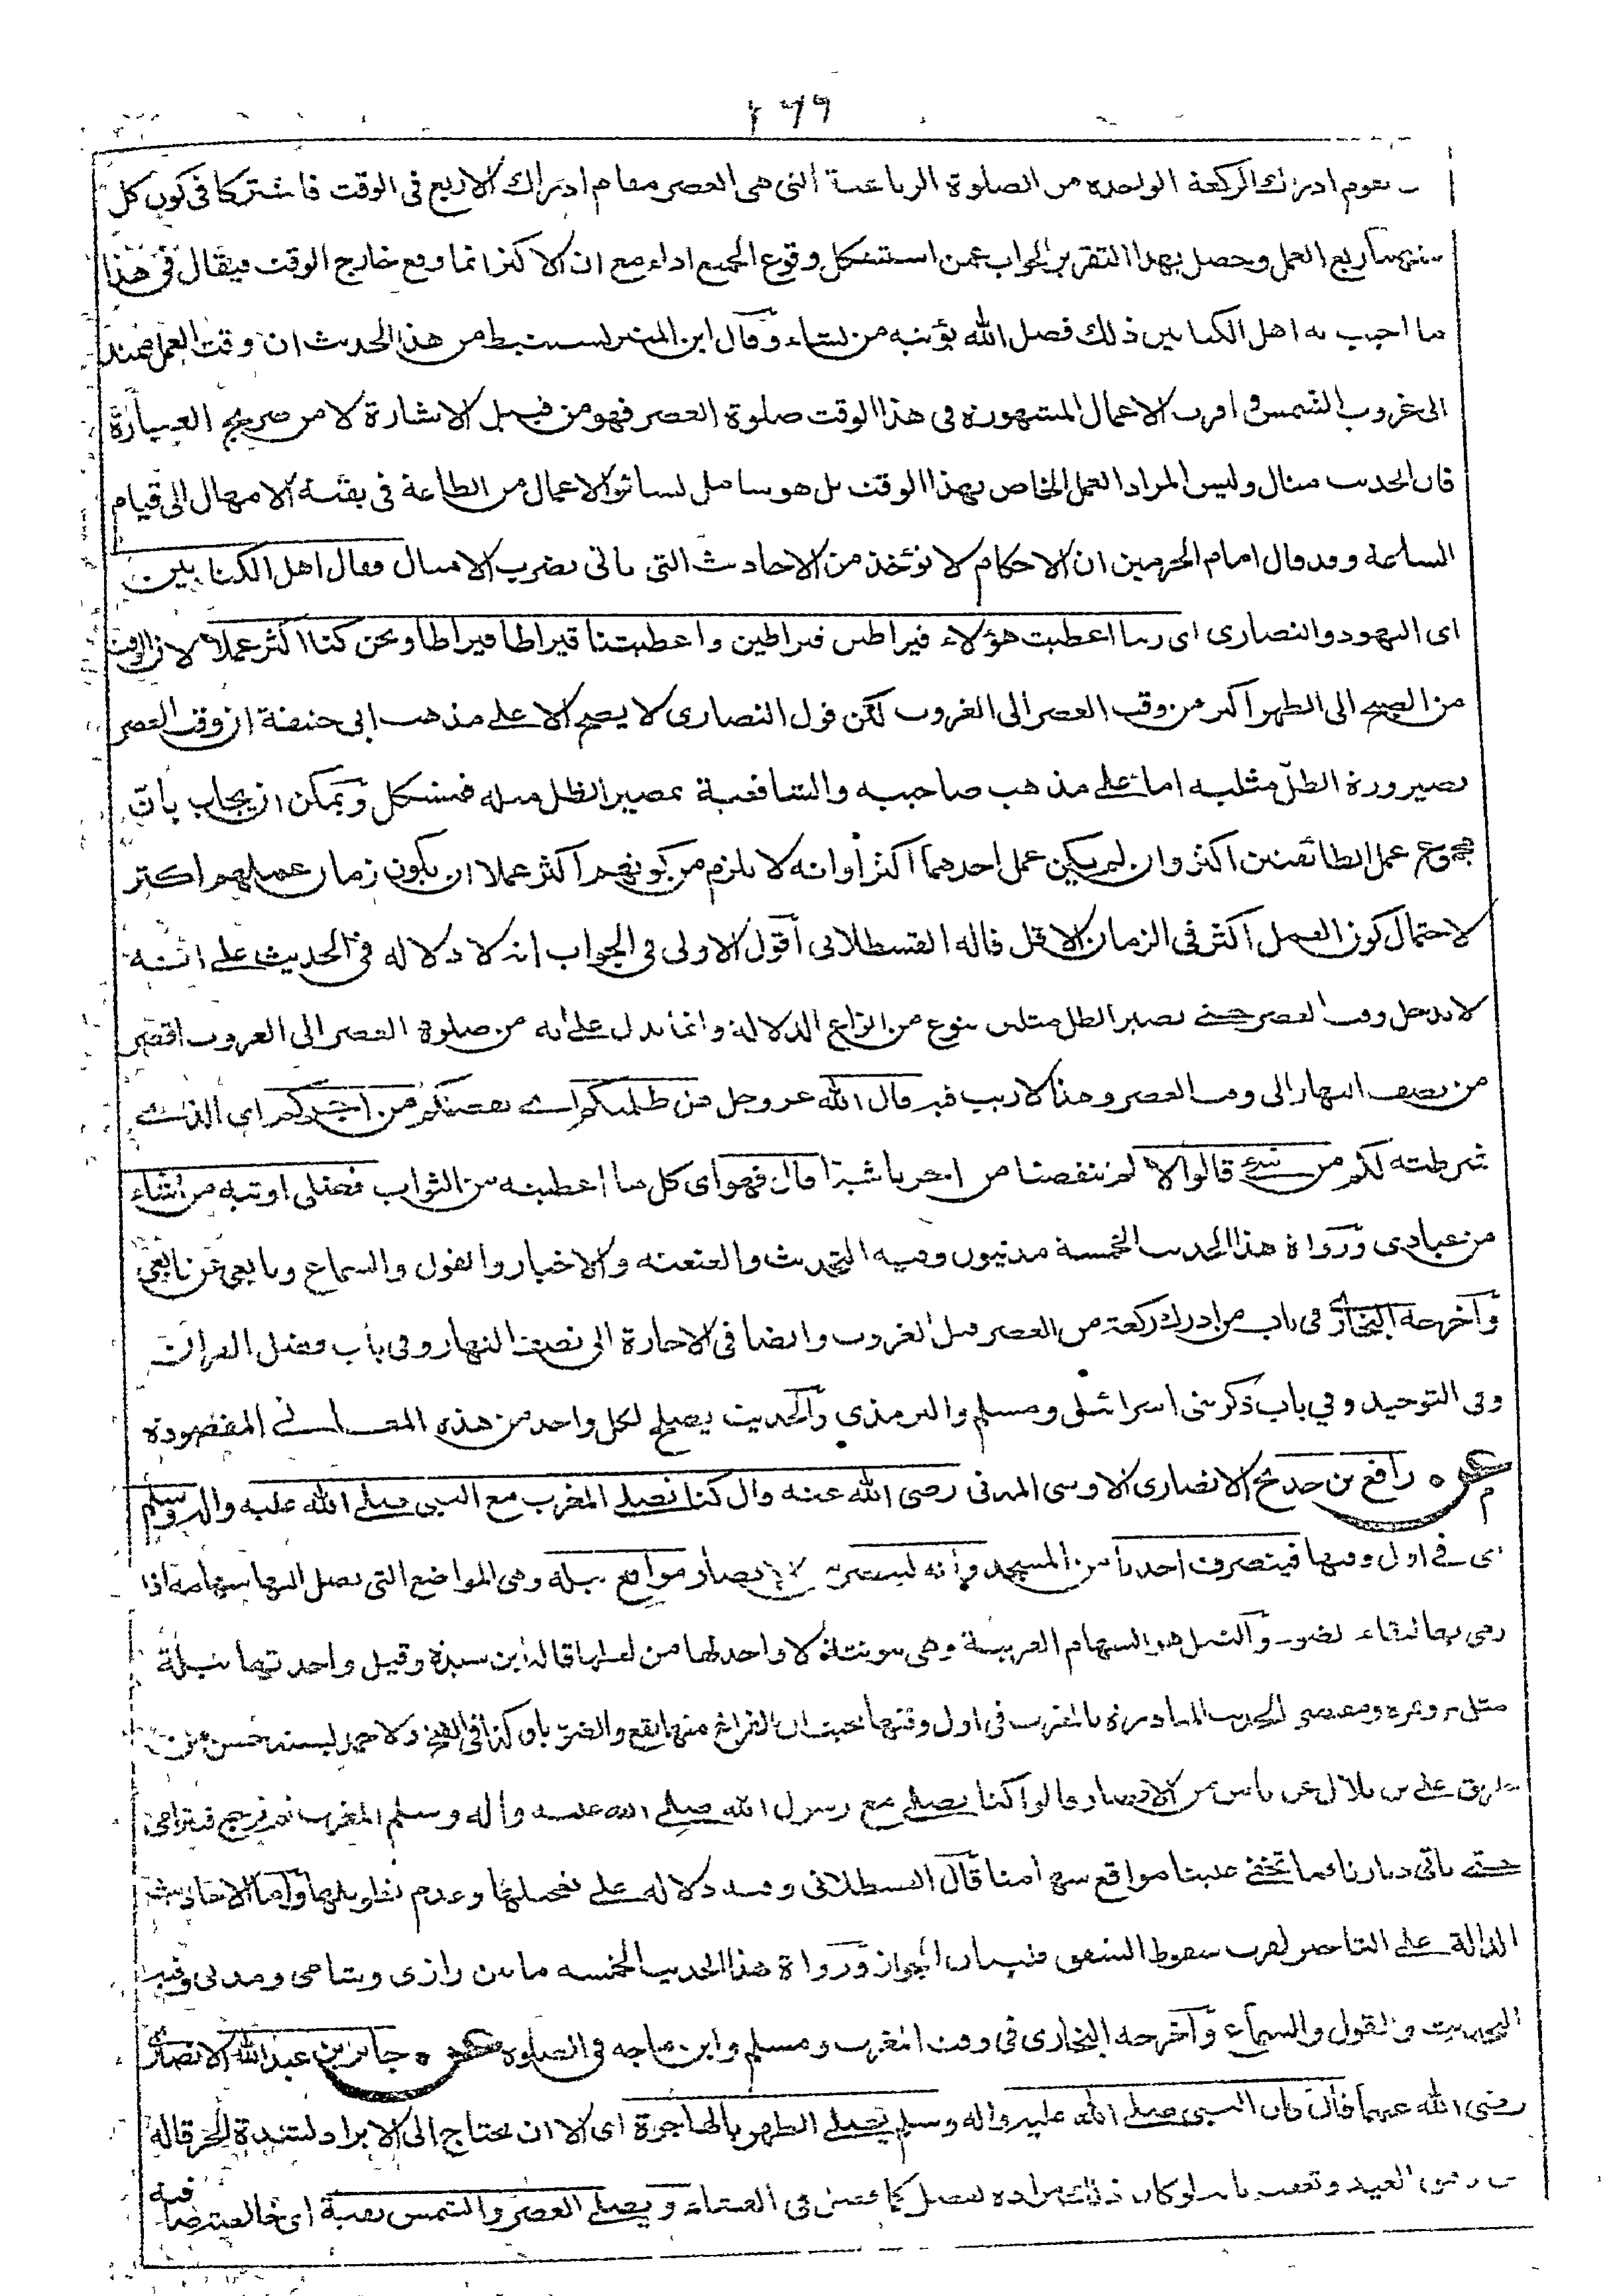 ٢٦٩
يقوم ادراك الركعة الواحدة من الصلوة الرباعية التي هي العصر مقام ادراك الاربع في الوقت فاشتركا في كون كل
منهما ربع العمل وحصل بهذا التقرير الجواب عمن استشكل وقوع الجميع اداء مع ان الاكثر انما وقع خارج الوقت فيقال في هذا
ما اجيب به اهل الكتابين ذلك فضل الله يؤتيه من يشاء وقال ابن المنير يستنبط من هذا الحديث ان وقت العمل ممتد
الى غروب الشمس واقرب الاعمال المشهورة في هذا الوقت صلوة العصر فهو من قبيل الاشارة لا من صريح العبارة
فان الحديث مثال وليس المراد العمل الخاص بهذا الوقت بل هو شامل لسائر الاعمال من الطاعة في بقية الامهال الى قيام
الساعة وقد قال امام الحرمين ان الاحكام لا تؤخذ من الاحاديث التي تاتي بضرب الامثال فقال اهل الكتابين
اى اليهود والنصارى اى ربنا اعطيت هؤلاء قيراطين قيراطين واعطيتنا قيراطا قيراطا ونحن كنا اكثر عملا لان الوقت
من الصبح الى الظهر اكثر من وقت العصر الى الغروب لكن قول النصارى لا يصح الا على مذهب ابي حنيفة ان وقت العصر
بصيرورة الظل مثليه اما على مذهب صاحبيه والشافعية بمصير الظل مثله فمشكل ويمكن ان يجاب بان
مجموع عمل الطائفتين اكثر وان لم يكن عمل احدهما اكثر او انه لا يلزم من كونهم اكثر عملا ان يكون زمان عملهم اكثر
لاحتمال كون العمل اكثر في الزمان الاقل قاله القسطلاني اقول الاولى في الجواب انه لا دلالة في الحديث على انه
لا يدخل وقت العصر حتى يصير الظل مثلين بنوع من انواع الدلالة وانما يدل على انه من صلوة العصر الى الغروب اقصر
من نصف النهار الى وقت العصر وهذا لا ريب فيه قال الله عز وجل هل ظلمتكم اى نقصتكم من اجركم اى الذى
شرطته لكم من شئ قالوا لا لم تنقصنا من اجرنا شيئا قال فهو اى كل ما اعطيته من الثواب فضلى اوتيه من اشاء
من عبادى ورواة هذا الحديث الخمسة مدنيون وفيه التحديث والعنعنة والاخبار والقول والسماع وتابعى عن تابعى
واخرجه البخارى في باب من ادرك ركعة من العصر قبل الغروب وايضا في الاجارة الى نصف النهار وفي باب فضل القران
وفي التوحيد وفي باب ذكر بنى اسرائيل ومسلم والترمذى والحديث يصلح لكل واحد من هذه المعاني المقصودة
عن رافع بن خديج الانصارى الاوسى المدنى رضى الله عنه قال كنا نصلى المغرب مع النبى صلى الله عليه واله وسلم
اى فى اول وقتها فينصرف احدنا من المسجد وانه ليبصر مواقع نبله وهى المواضع التى تصل اليها سهامه اذا
رمى بها لبقاء الضوء والنبل هى السهام العربية وهى مؤنثة لا واحد لها من لفظها قاله ابن سيده وقيل واحدتها نبلة
مثل تمر وتمرة ومقتضى الحديث المبادرة بالمغرب في اول وقتها بحيث ان الفراغ منها يقع والضوء باق كذا في الفتح ولاحمد بسند حسن من
طريق على بن بلال عن ناس من الانصار قالوا كنا نصلى مع رسول الله صلى الله عليه واله وسلم المغرب ثم نرجع فنترامى
حتى ناتى ديارنا فما تخفى علينا مواقع سهامنا قال القسطلانى وفيه دلالة على تعجيلها وعدم تطويلها واما الاحاديث
الدالة على التاخير لقرب سقوط الشفق فلبيان الجواز ورواة هذا الحديث الخمسة ما بين رازى وشامى ومدنى وفيه
التحديث والقول والسماع واخرجه البخارى في وقت المغرب ومسلم وابن ماجه في الصلوة عن جابر بن عبد الله الانصارى
رضى الله عنهما قال كان النبى صلى الله عليه واله وسلم يصلى الظهر بالهاجرة اى الا ان يحتاج الى الابراد لشدة الحر قاله
العيد وتعقب بانه لو كان ذلك مراده لفصل كما فصل فى العشاء ويصلى العصر والشمس نقية اى خالصة صافية